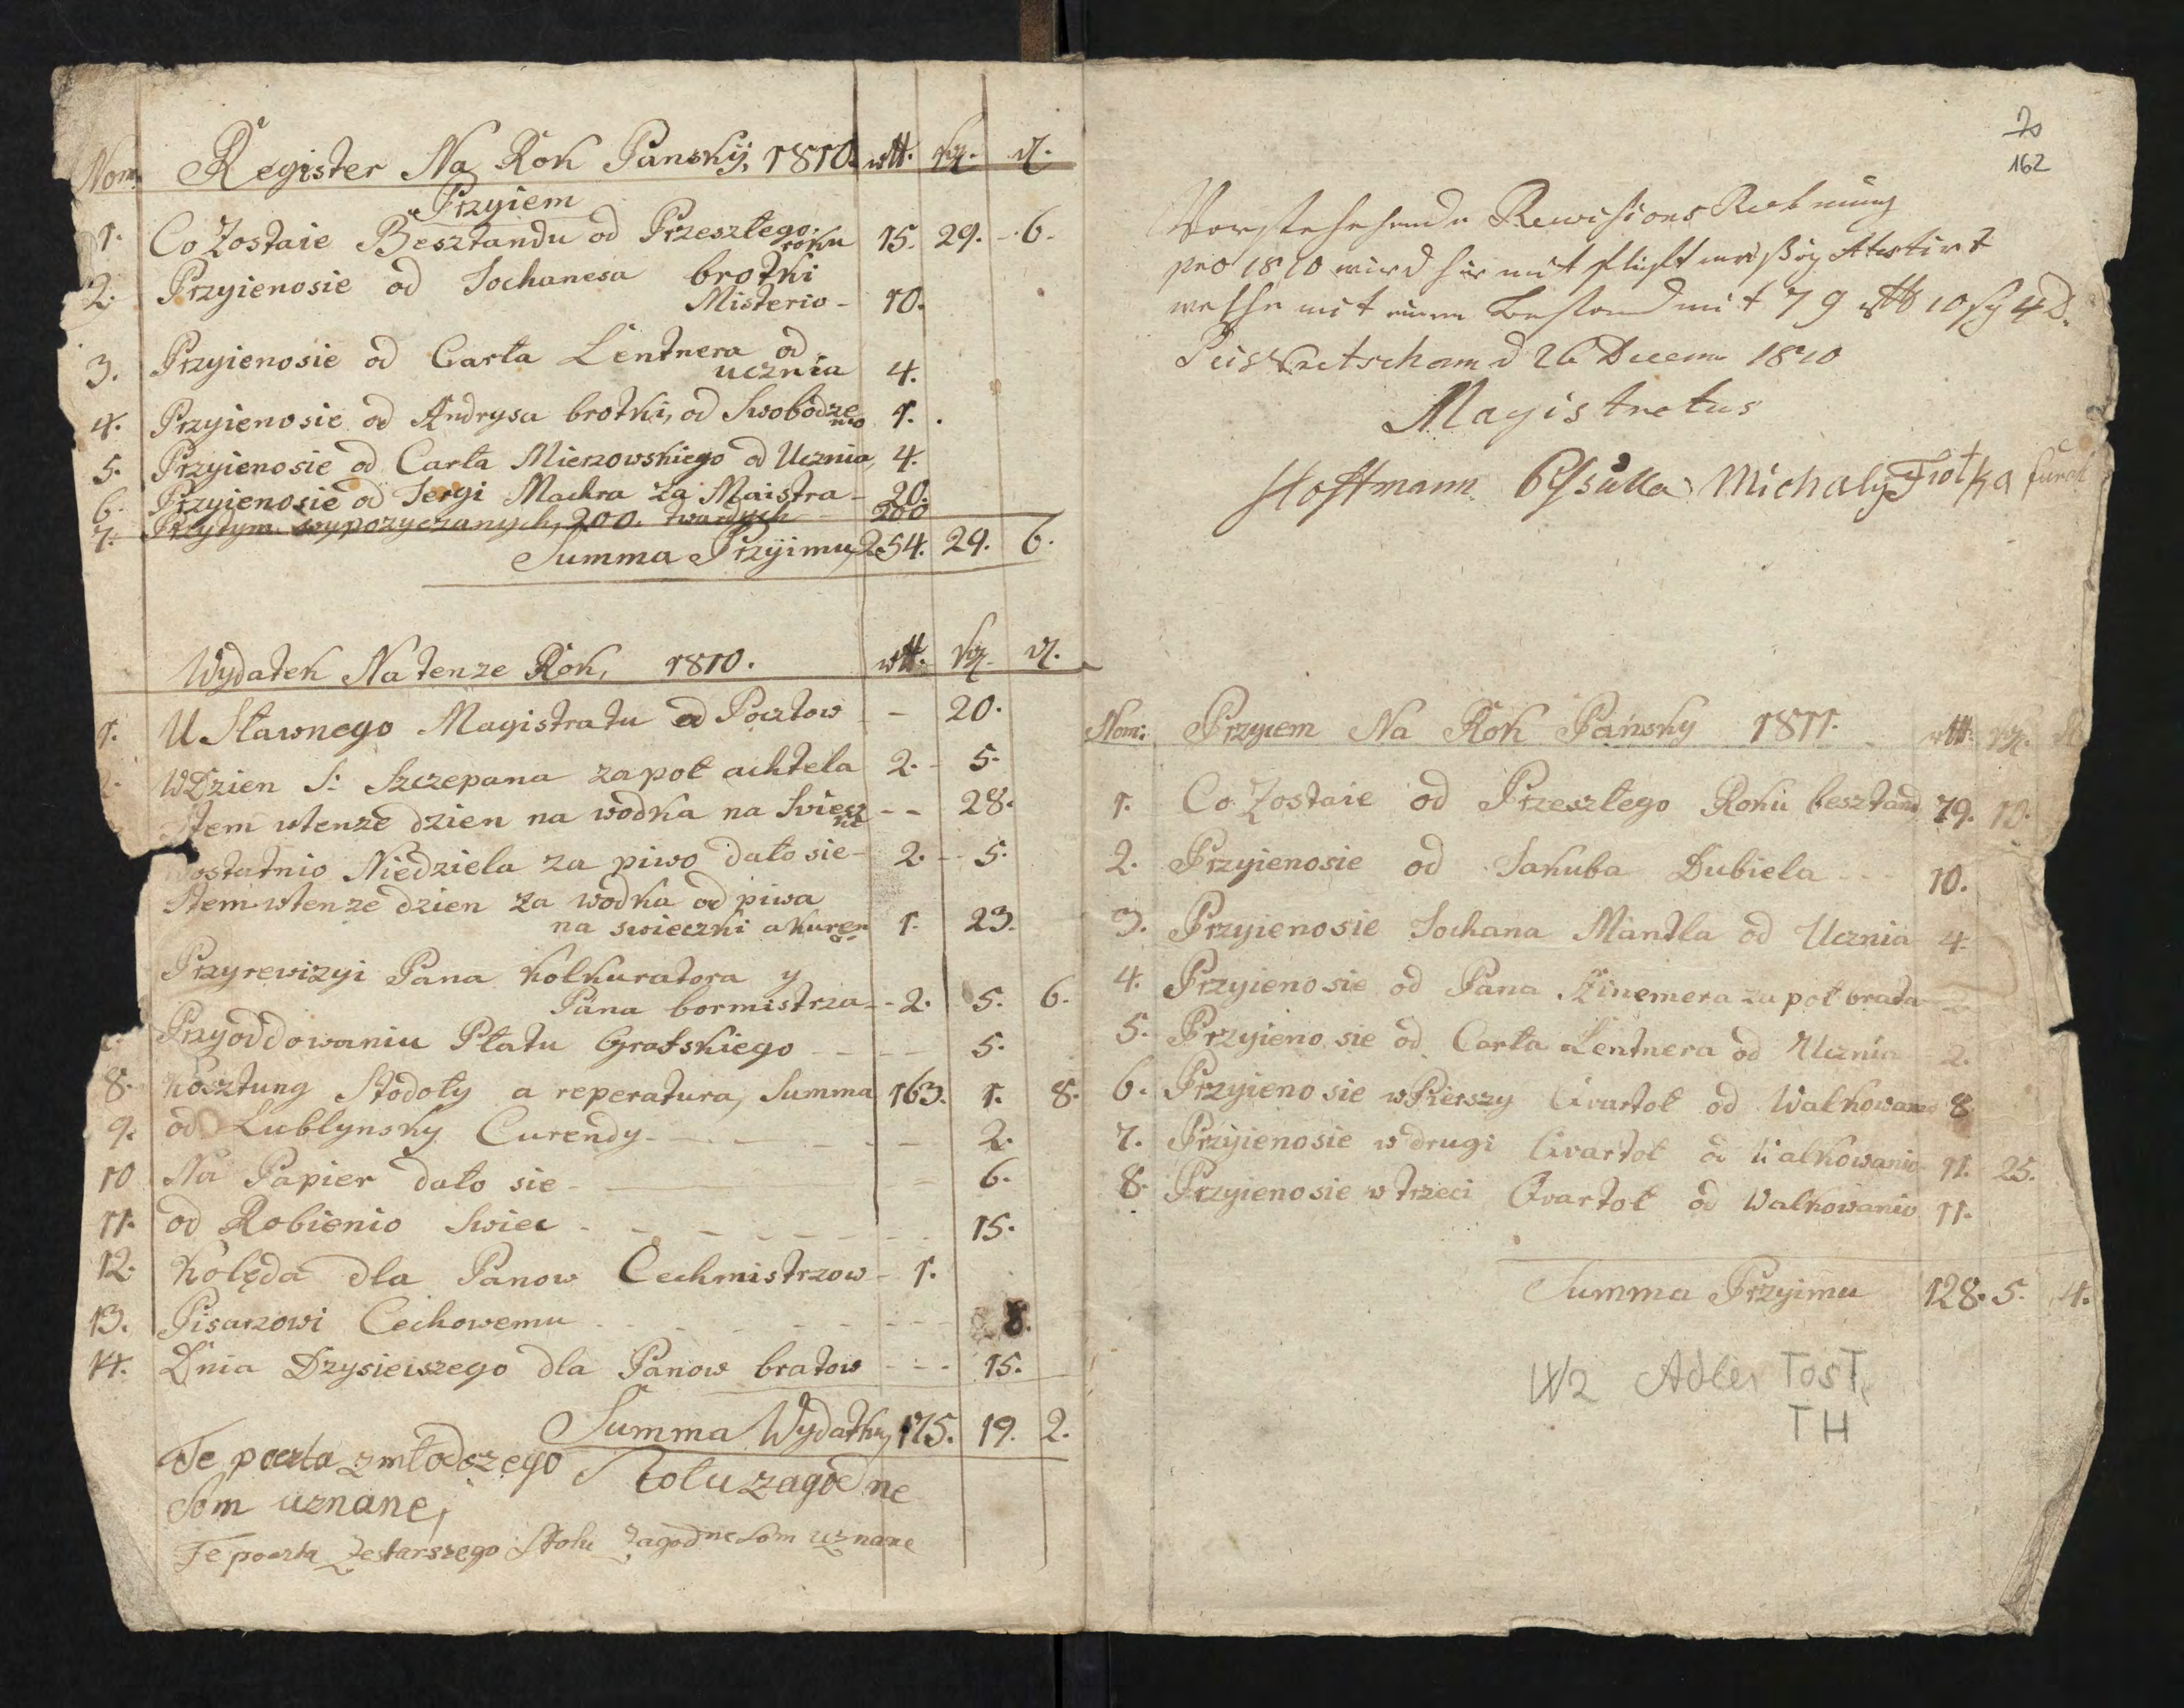 Nom. Register Na Rok Panskÿ, 1810. rtl. sg. d.
Przyiem
1. Co Zostaie Besztandu od Przeszłego roku 15. 29. 6.
2. Przyienosie od Jochanesa brotki
Misterio - 10.
3. Przyienosie od Carla Lentnera od
ucznia 4.
4. Przyienosie od Andrysa brotki, od Swobodzenio 1.
5. Przyienosie od Carla Mierzovskiego od Ucznia, 4.
6. Przyienosie od Jergi Machra za Maistra - 20.
7. Przytym wypozyczanych, 200. twardych 200
Summa Przÿimu, 254. 29. 6.
Wydatek Na tenze Rok, 1810. rtl. sg. d.
1. U Sławnego Magistratu od Pocztow - 20.
2. WDzien S: Szczepana za poł achtela 2. 5.
Item wtenze dzien na wodka na Swieczke - - 28.
Wostatnio Niedziela za piwo dało sie - 2. - 5.
Item wtenze dzien za wodka od piwa
na swieczki a kurer 1. 23.
Przy rewizyi Pana Kolkuratora y
Pana bormistrza - - 2. 5. 6.
Przyoddowaniu Płatu Grafskiego - - - 5.
8. Kosztung Stodoły a reperatura, Summa 163. 1. 8.
9. od Lublynsky Curendy - - - 2.
10 Na Papier dało sie - - 6.
11. od Robienio Swiec - - - 15.
12. Kolęda dla Panow Cechmistrzow - 1.
13. Pisarzowi Cechowemu - - - 8.
14. Dnia Dzysieiszego dla Panow bratow - - - 15.
Summa Wydatku, 175. 19. 2.
Te poczta z młodszego Stolu zagodne
som uznane,
Te poczta zestarszego Stolu zagodne som uznane
20
162
Vorstehehende Rewisions Rechnung
pro 1810 wird hir mit flicht mäßig Atestirt
welche mit einem Bestand mit 79 rtl 10 sg 4 d.
Peiskretscham d 26 Decem 1810
Magistratus
Hoffmann Michaly Fiołka
Nom: Przyiem Na Rok Pański 1811. rtl. sg. d
1. Co Zostaie od Przeszłego Roku besztand 79. 10.
2. Przyienosie od Jakuba Dubiela - - - 10.
3. Przyienosie Jochana Mantla od Ucznia 4.
4. Przyienosie od Pana Szinemera za poł brata - 2
5. Przyienosie od Carla Lentnera od Ucznia 2.
6. Przyienosie w Pierszy Qvartoł od Walkowanio 8
7. Przyienosie w drugi Qvartoł od Walkowanio 11. 25.
8. Przyienosie w trzeci Qvartoł od Walkowanio 11.
Summa Przyimu 128. 5. 4.
IX/2 Adler Tost,
TH